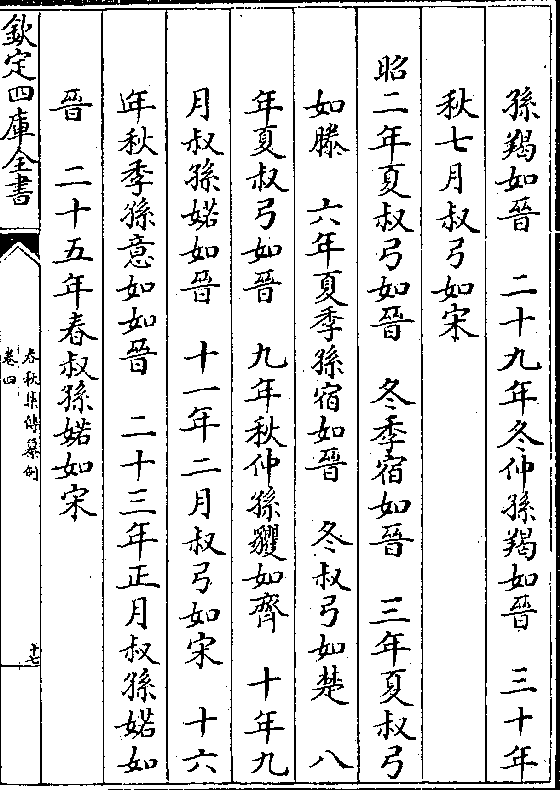 孫羯如晉　二十九年冬仲孫羯如晉　三十年
秋七月叔弓如宋
昭二年夏叔弓如晉　冬季宿如晉　三年夏叔弓
如滕　六年夏季孫宿如晉　冬叔弓如楚　八
年夏叔弓如晉　九年秋仲孫貜如齊　十年九
月叔孫婼如晉　十一年二月叔弓如宋　十六
年秋季孫意如如晉　二十三年正月叔孫婼如
晉　二十五年春叔孫婼如宋
欽定四庫全書
春秋集傳纂例
卷四
十七